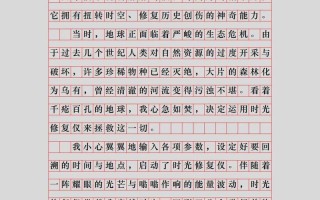 它拥有扭转时空、修复历史创伤的神奇能力。
当时，地球正面临着严峻的生态危机。由
于过去几个世纪人类对自然资源的过度开采与
破坏，许多珍稀物种已经灭绝，大片的森林化
为乌有，曾经清澈的河流变得污浊不堪。看着
千疮百孔的地球，我心急如焚，决定运用时光
修复仪来拯救这一切。
我小心翼翼地输入各项参数，设定好要回
溯的时间与地点，启动了时光修复仪。伴随着
一阵耀眼的光芒与嗡嗡作响的能量波动，时光